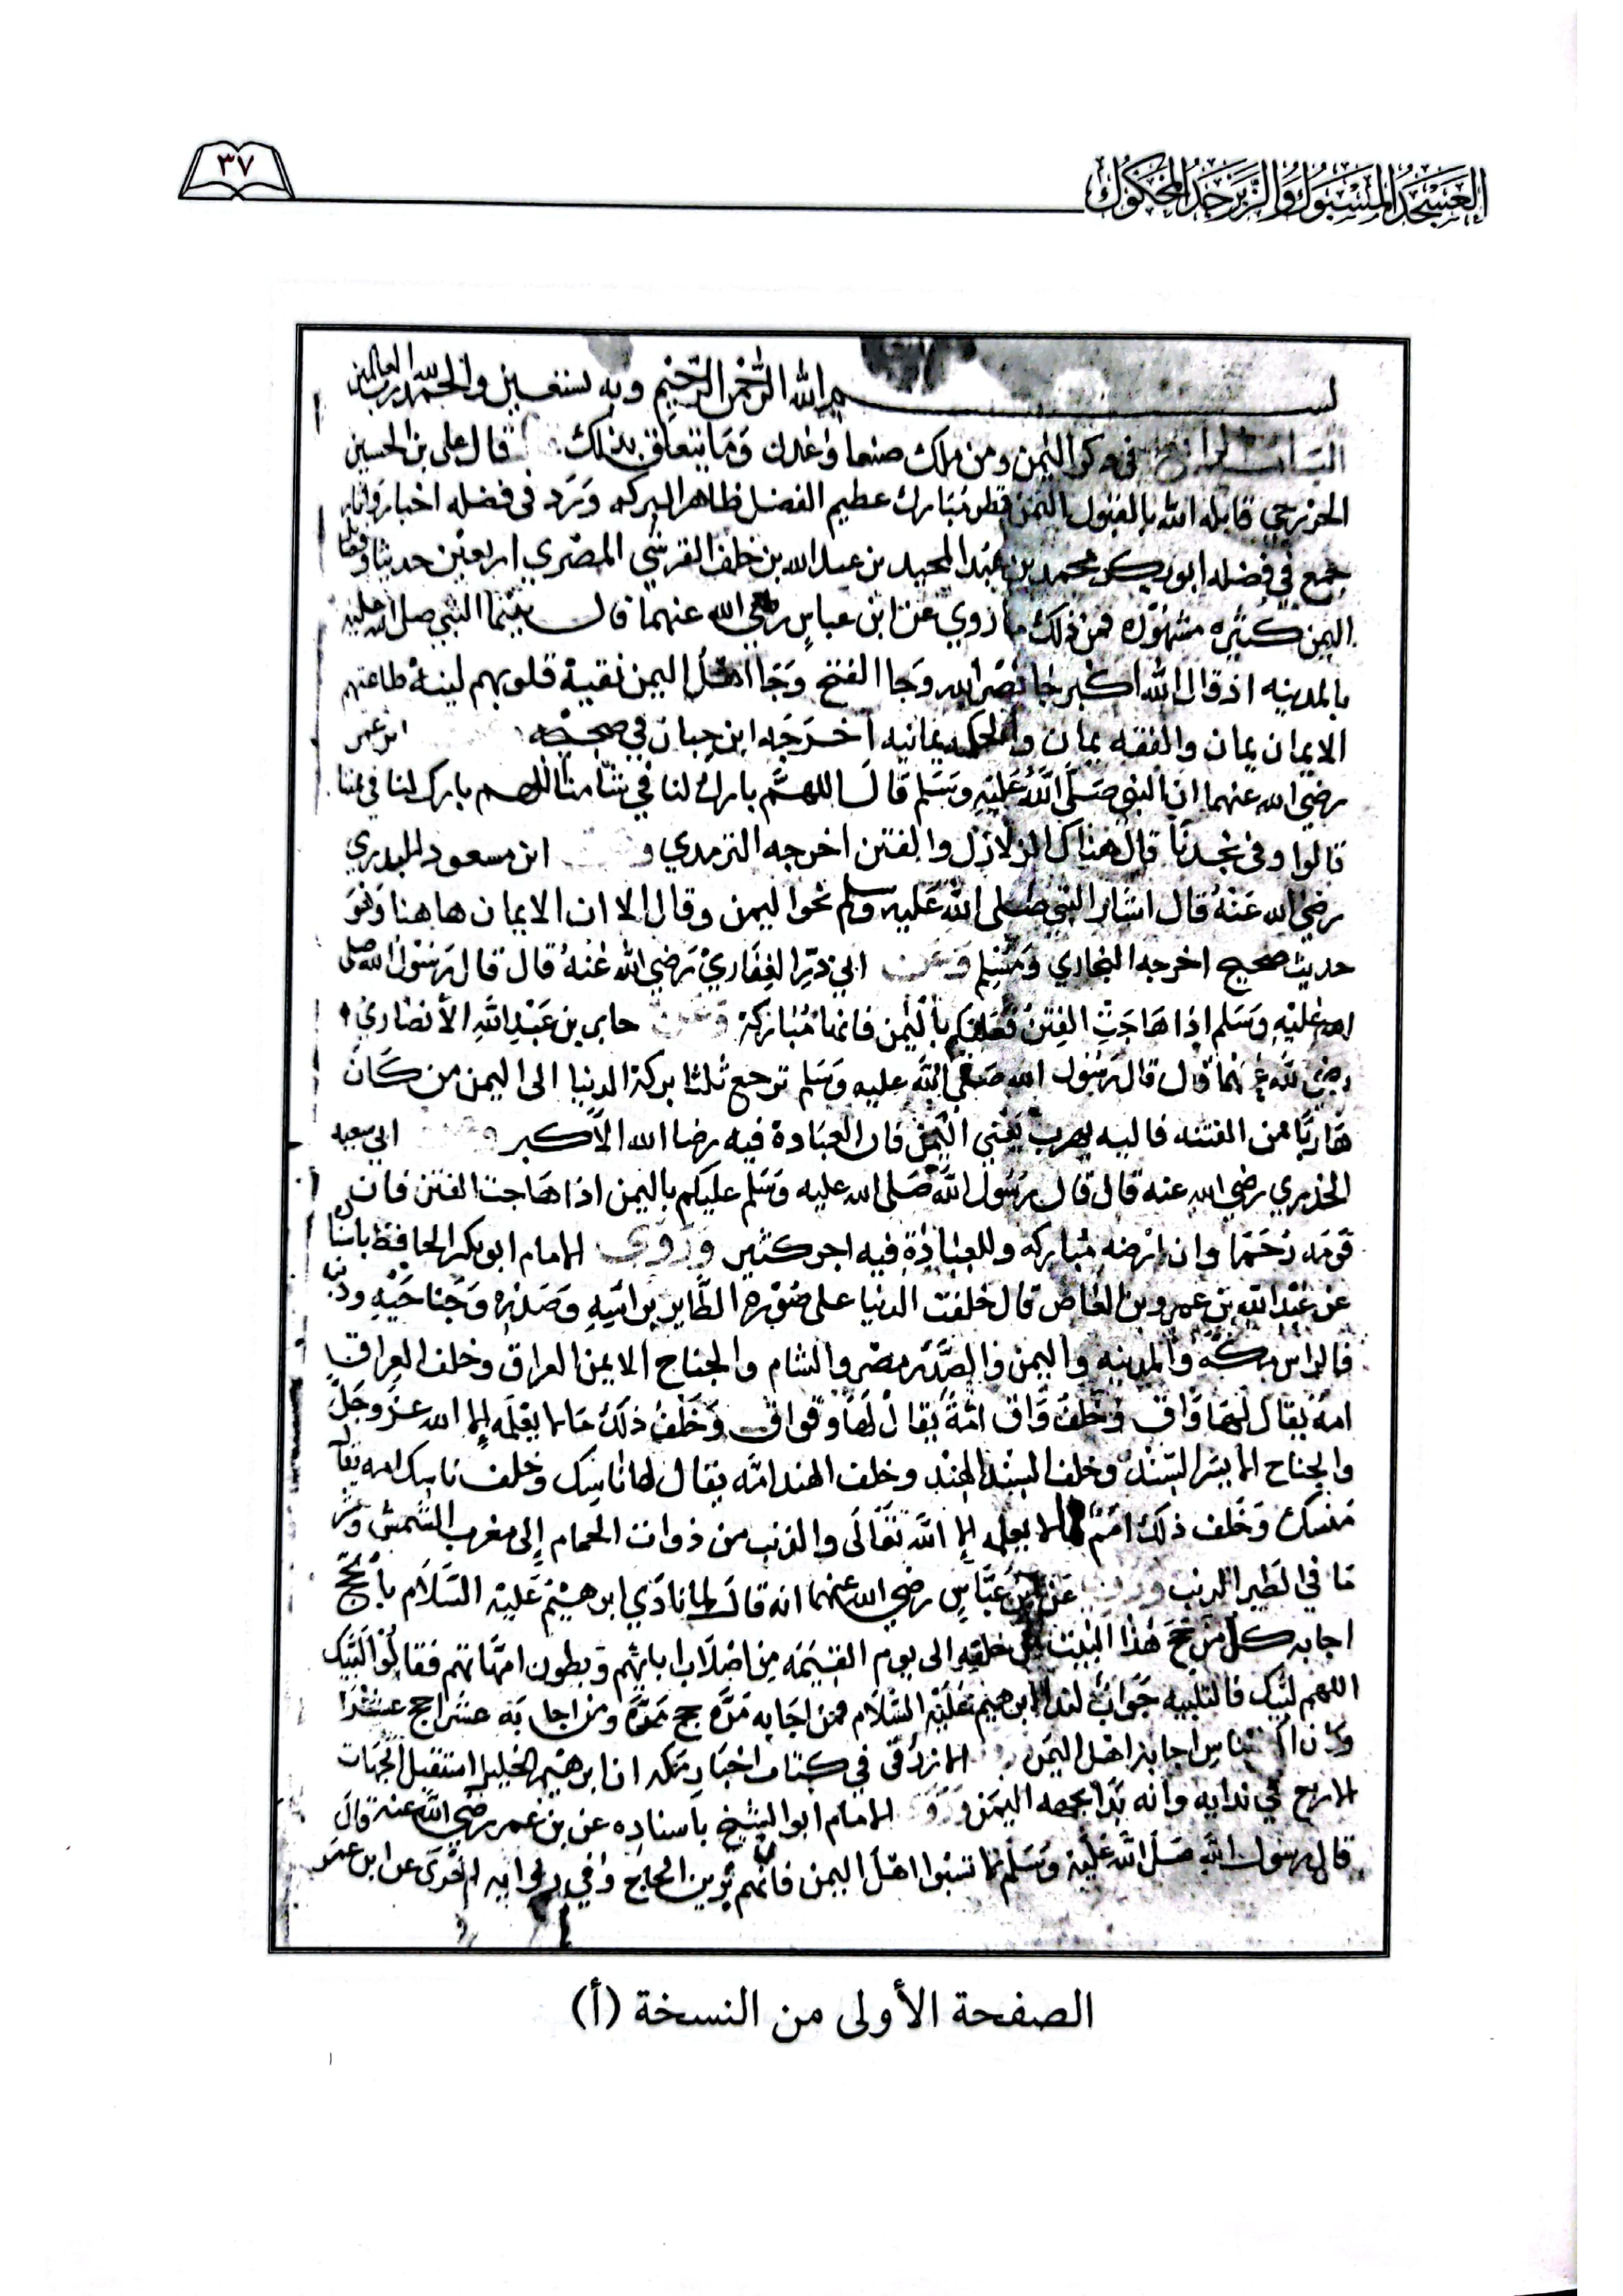 العسجد المسبوك والزبرجد المحكوك
٣٧
بسم الله الرحمن الرحيم وبه نستعين والحمد لله رب العالمين
في ذكر اليمن ومن ملك صنعا وعدن وما يتعلق بذلك قال علي بن الحسين
الخزرجي قابله الله بالقبول اليمن قطر مبارك عظيم الفضل ظاهر البركه ورد في فضله اخبار واثار
جمع في فضله ابو بكر محمد بن عبد المجيد بن عبد الله بن خلف القرشي المصري اربعين حديثا
اليمن كثيره مشهوره فمن ذلك ما روي عن ابن عباس رضي الله عنهما قال بينما النبي صلى الله عليه
بالمدينه اذ قال الله اكبر جا نصر الله وجا الفتح وجا اهل اليمن نقية قلوبهم لينة طاعتهم
الايمان يمان والفقه يمان والحكمه يمانيه اخرجه ابن حبان في صحيحه ابن عمر
رضي الله عنهما ان النبي صلى الله عليه وسلم قال اللهم بارك لنا في شامنا اللهم بارك لنا في يمننا
قالوا وفي نجدنا قال هناك الزلازل والفتن اخرجه الترمدي و ابن مسعود البدري
رضي الله عنه قال اشار النبي صلى الله عليه وسلم نحو اليمن وقال الا ان الايمان هاهنا وهو
حديث صحيح اخرجه البخاري ومسلم وعن ابي ذر الغفاري رضي الله عنه قال قال رسول الله صلى
الله عليه وسلم اذا هاجت الفتن فعليكم باليمن فانها مباركة وعن جابر بن عبد الله الأنصاري
رضي الله عنهما قال قال رسول الله صلى الله عليه وسلم ترجع ثلثا بركة الدنيا الى اليمن من كان
هاربا من الفتنه فاليه يهرب يعني اليمن فان العبادة فيه رضا الله الأكبر ابي سعيد
الخدري رضي الله عنه قال قال رسول الله صلى الله عليه وسلم عليكم باليمن اذا هاجت الفتن فان
قومه رحما وان ارضه مباركه وللعبادة فيه اجر كثير وروى الامام ابو بكر الحافظ باسناده
عن عبد الله بن عمرو بن العاص قال خلقت الدنيا على صورة الطاير براسه وصدره وجناحيه وذنبه
فالراس مكه والمدينه واليمن والصدر مصر والشام والجناح الايمن العراق وخلف العراق
امة يقال لها واق وخلف واق امة يقال لها وقواق وخلف ذلك ما لا يعلمه إلا الله عز وجل
والجناح الايسر السند وخلف السند الهند وخلف الهند امه يقال لها ناسك وخلف ناسك امه يقال
منسك وخلف ذلك امم لا يعلمه إلا الله تعالى والذنب من ذوات الحمام إلى مغرب الشمس وشر
ما في الطير الذنب عن ابن عباس رضي الله عنهما انه قال لما نادى ابرهيم عليه السلام بالحج
اجابه كل من حج هذا البيت من خلقه الى يوم القيمه من اصلاب ابائهم وبطون امهاتهم فقالوا لبيك
اللهم لبيك فالتلبيه جواب لندا ابرهيم عليه السلام فمن اجابه مرة حج مرة ومن اجابه عشرا حج عشرا
وكان اكثر الناس اجابة اهل اليمن الازرقي في كتاب اخبار مكه ان ابرهيم الخليل استقبل الجهات
الاربع في ندايه وانه بدا بجهه اليمن الامام ابو الشيخ باسناده عن بن عمر رضي الله عنه قال
قال رسول الله صلى الله عليه وسلم لا تسبوا اهل اليمن فانهم زين الحاج وفي روايه اخرى عن ابن عمر
الصفحة الأولى من النسخة (أ)